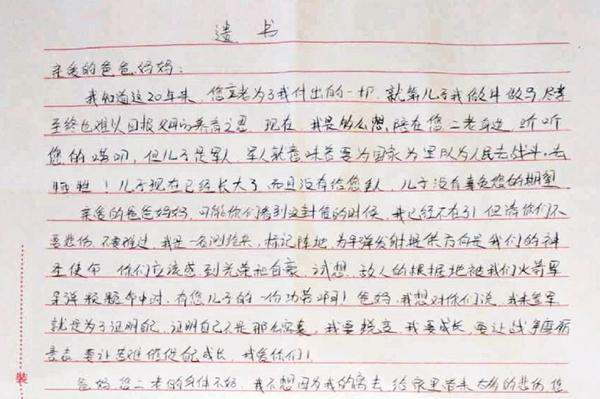 遗书
亲爱的爸爸妈妈：
我知道这20年来，您二老为了我付出的一切，就算儿子我做牛做马尽孝
至终也难以回报父母的养育之恩，现在，我是多么想陪在您二老身边，听听
您的唠叨，但儿子是军人，军人就意味着要为国家为军队为人民去战斗，去
牺牲！儿子现在已经长大了，而且没有给您丢人，儿子没有辜负您的期望
亲爱的爸爸妈妈，可能你们看到这封信的时候，我已经不在了！但请你们不
要悲伤，不要难过，我是一名测绘兵，标记阵地，为导弹发射提供方向是我们的神
圣使命，你们应该感到光荣和自豪，试想，敌人的根据地被我们火箭军
导弹 命中时，有您儿子的一份功劳啊！爸妈，我想对你们说，我来参军
就是为了证明自己，证明自己不是那么 ，我要蜕变，我要成长，要让战争磨砺
意志，要让苦难催促自己成长，我爱你们！
爸妈，您二老的身体不好，我不想因为我的离去，给家里带来太多的悲伤，您
装